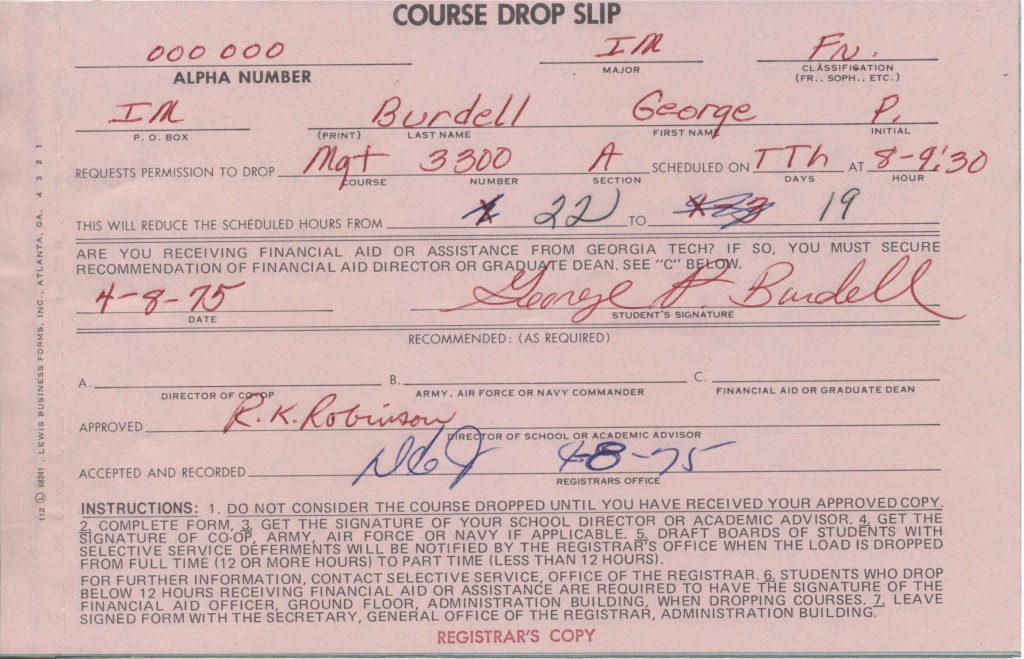 COURSE DROP SLIP
000 000 IM Fr.
ALPHA NUMBER MAJOR CLASSIFICATION
(FR., SOPH., ETC.)
IM Burdell George P.
P. O. BOX (PRINT) LAST NAME FIRST NAME INITIAL
REQUESTS PERMISSION TO DROP Mgt 3300 A SCHEDULED ON TTh AT 8-9:30
COURSE NUMBER SECTION DAYS HOUR
THIS WILL REDUCE THE SCHEDULED HOURS FROM 22 TO 19
ARE YOU RECEIVING FINANCIAL AID OR ASSISTANCE FROM GEORGIA TECH? IF SO, YOU MUST SECURE
RECOMMENDATION OF FINANCIAL AID DIRECTOR OR GRADUATE DEAN. SEE "C" BELOW.
4-8-75 George P. Burdell
DATE STUDENT'S SIGNATURE
RECOMMENDED: (AS REQUIRED)
A. B. C.
DIRECTOR OF CO-OP ARMY, AIR FORCE OR NAVY COMMANDER FINANCIAL AID OR GRADUATE DEAN
APPROVED R.K. Robinson
DIRECTOR OF SCHOOL OR ACADEMIC ADVISOR
ACCEPTED AND RECORDED 4-8-75
REGISTRARS OFFICE
INSTRUCTIONS: 1. DO NOT CONSIDER THE COURSE DROPPED UNTIL YOU HAVE RECEIVED YOUR APPROVED COPY.
2. COMPLETE FORM, 3. GET THE SIGNATURE OF YOUR SCHOOL DIRECTOR OR ACADEMIC ADVISOR. 4. GET THE
SIGNATURE OF CO-OP, ARMY, AIR FORCE OR NAVY IF APPLICABLE. 5. DRAFT BOARDS OF STUDENTS WITH
SELECTIVE SERVICE DEFERMENTS WILL BE NOTIFIED BY THE REGISTRAR'S OFFICE WHEN THE LOAD IS DROPPED
FROM FULL TIME (12 OR MORE HOURS) TO PART TIME (LESS THAN 12 HOURS).
FOR FURTHER INFORMATION, CONTACT SELECTIVE SERVICE, OFFICE OF THE REGISTRAR. 6. STUDENTS WHO DROP
BELOW 12 HOURS RECEIVING FINANCIAL AID OR ASSISTANCE ARE REQUIRED TO HAVE THE SIGNATURE OF THE
FINANCIAL AID OFFICER, GROUND FLOOR, ADMINISTRATION BUILDING, WHEN DROPPING COURSES. 7. LEAVE
SIGNED FORM WITH THE SECRETARY, GENERAL OFFICE OF THE REGISTRAR, ADMINISTRATION BUILDING.
REGISTRAR'S COPY
112 L 68241 . LEWIS BUSINESS FORMS, INC., ATLANTA, GA. 4 3 2 1